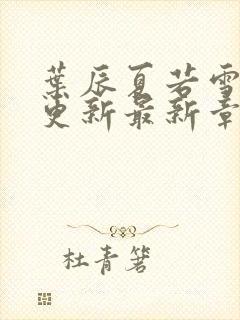 葉辰夏若雪
更新最新章
杜青箬